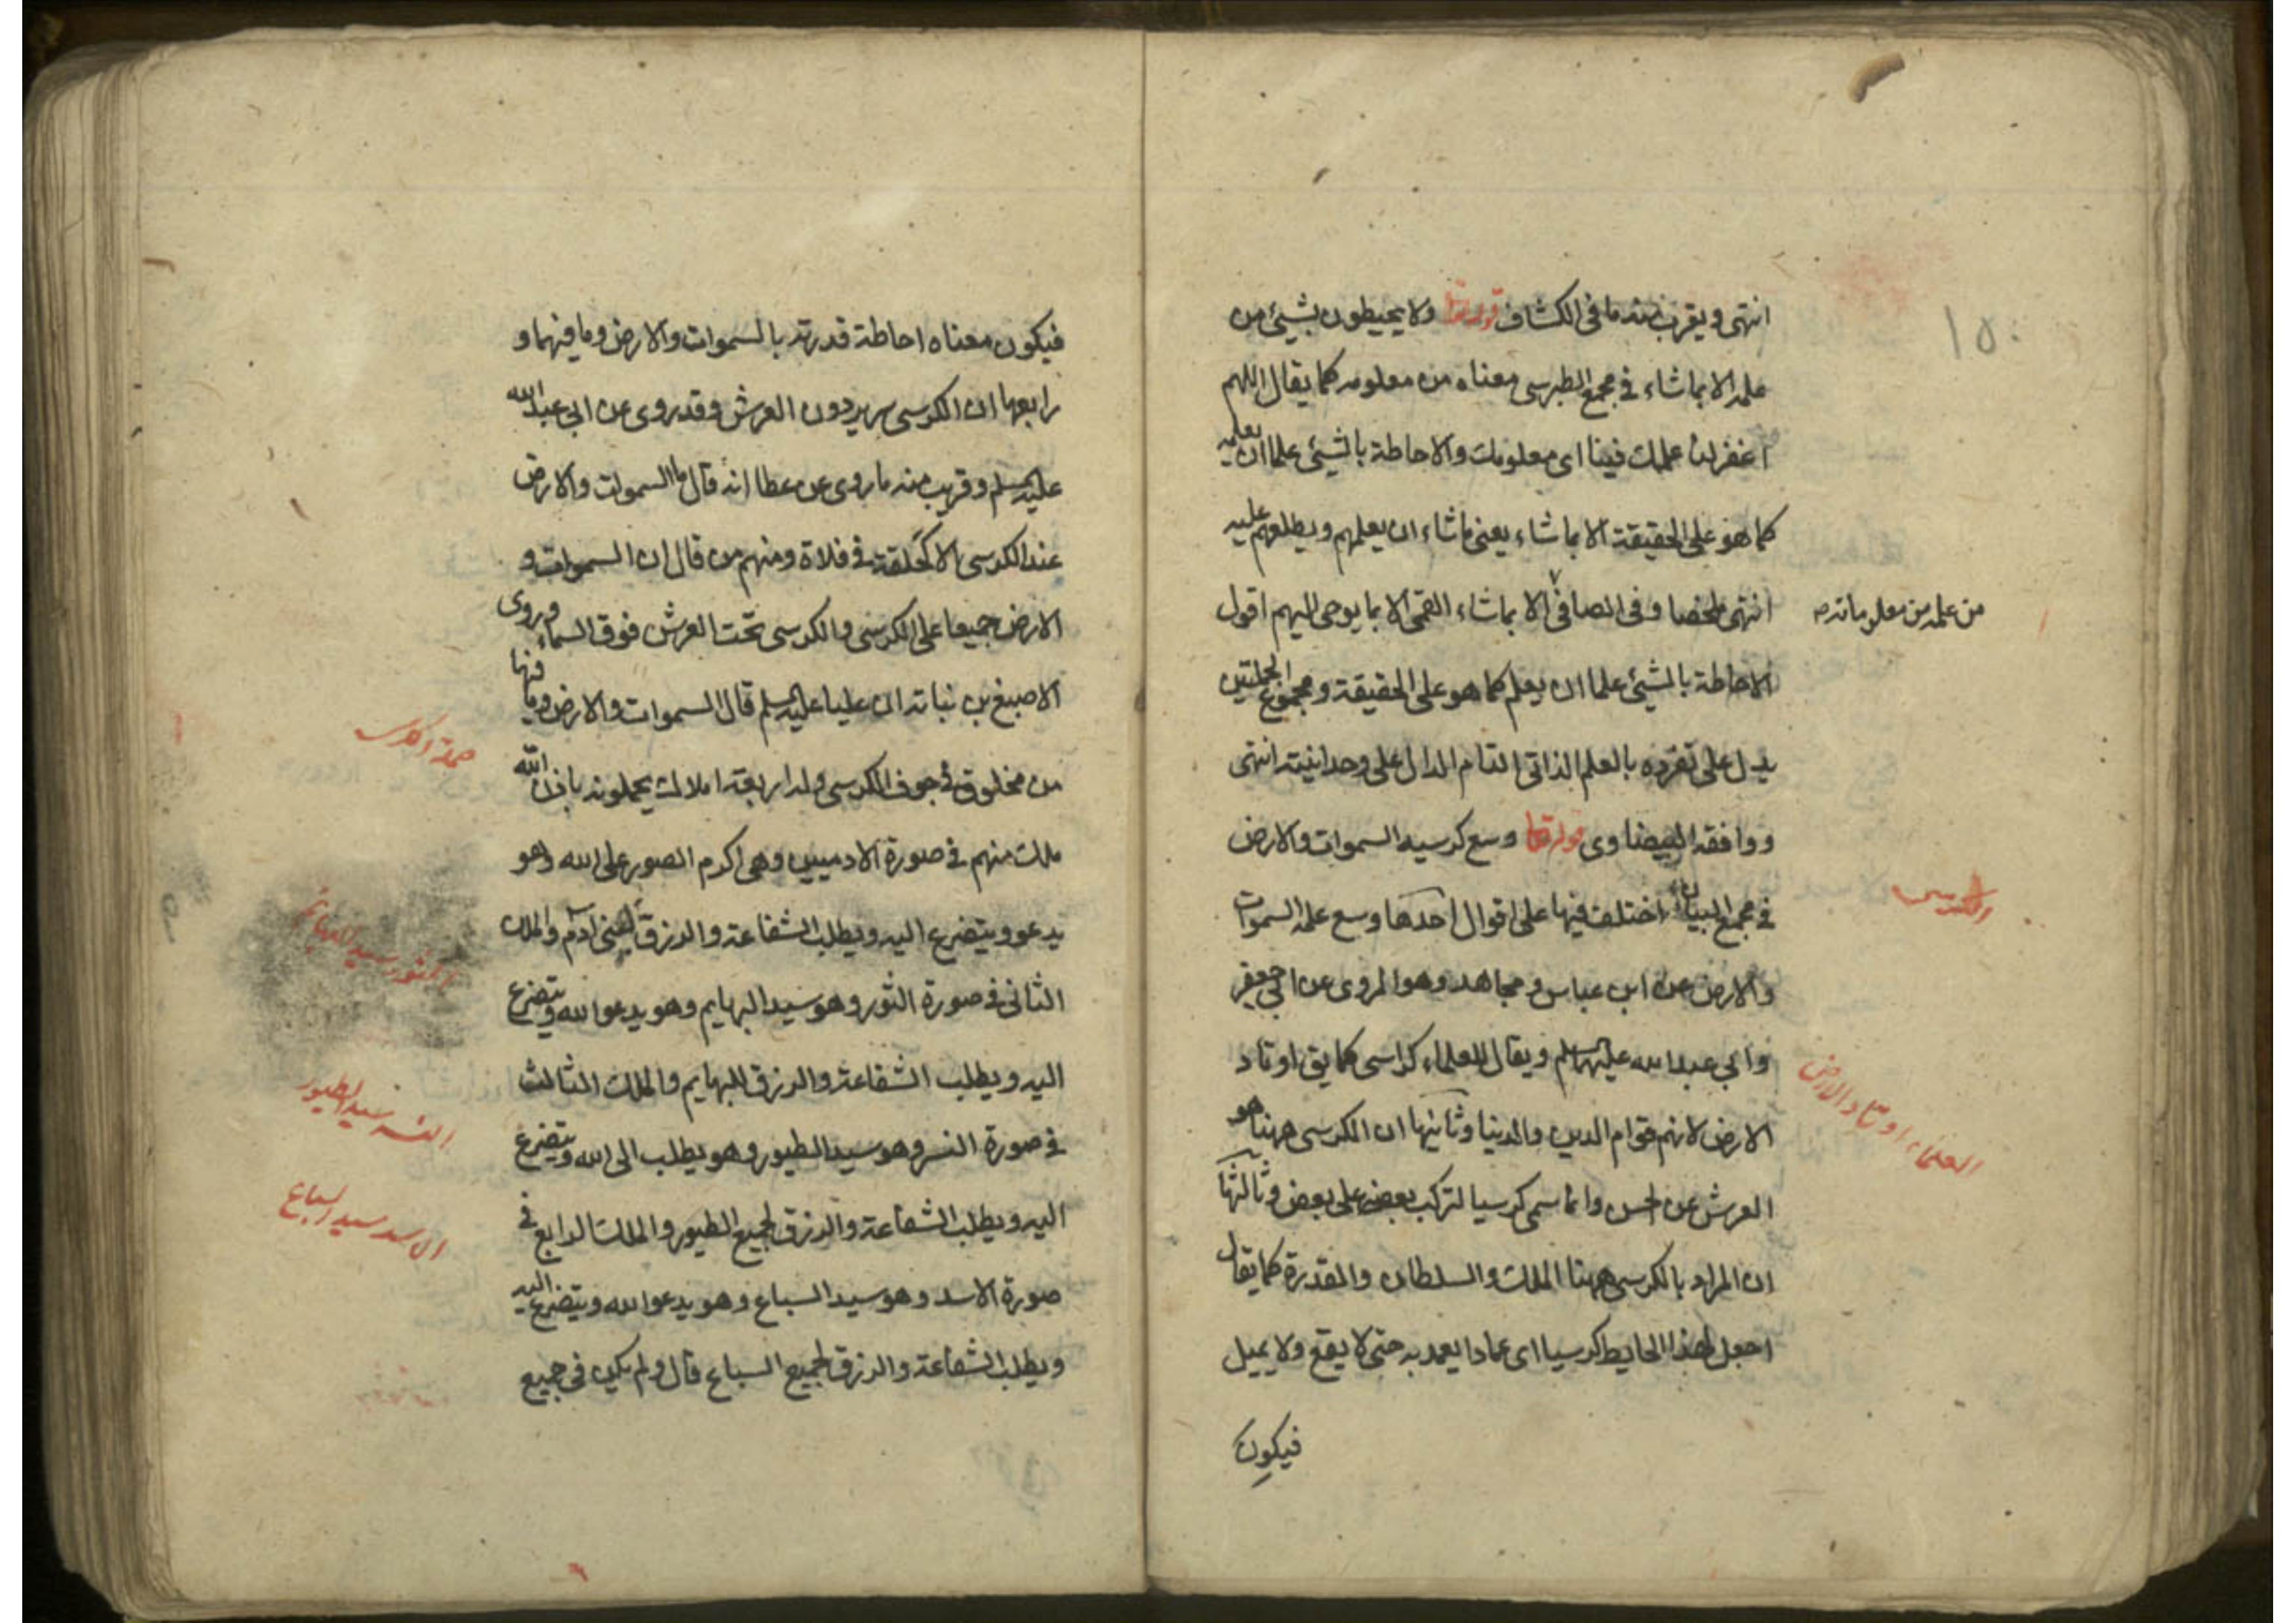 ١٥٠
انتهى ويقرب منه ما فى الكشاف قوله تعا ولا يحيطون بشيئ من
علمه الا بما شاء فى مجمع الطبرسى معناه من معلومه كما يقال اللهم
اغفر لنا علمك فينا اى معلومك والاحاطة بالشيئ علما ان يعلمه
كما هو على الحقيقة الا بما شاء يعنى ما شاء ان يعلمهم ويطلعهم عليه
انتهى ملخصا وفى الصافى الا بما شاء القمى الا بما يوحى اليهم اقول
من علمه من معلوماته صه
الاحاطة بالشيئ علما ان يعلم كما هو على الحقيقة ومجموع الجملتين
يدل على تفرده بالعلم الذاتى التام الدال على وحدانيته انتهى
ووافقه البيضاوى قوله تعا وسع كرسيه السموات والارض
فى مجمع البيان اختلف فيها على اقوال احدها وسع علمه السموات
الكرسى
والارض عن ابن عباس ومجاهد وهو المروى عن ابى جعفر
وابى عبد الله عليهم السلم ويقال للعلماء كراسى كما يق اوتاد
العلماء اوتاد الارض
الارض لانهم قوام الدين والدنيا وثانيها ان الكرسى ههنا هو
العرش عن الحسن وانما سمى كرسيا لتركب بعضه على بعض وثالثها
ان المراد بالكرسى ههنا الملك والسلطان والقدرة كما يقال
اجعل لهذا الحايط كرسيا اى عمادا يعمد به حتى لا يقع ولا يميل
فيكون
فيكون معناه احاطة قدرته بالسموات والارض وما فيهما و
رابعها ان الكرسى سرير دون العرش وقد روى عن ابى عبد الله
عليه السلم وقريب منه ما روى عن عطا انه قال ما السموات والارض
عند الكرسى الا كحلقة فى فلاة ومنهم من قال ان السموات و
الارض جميعا على الكرسى والكرسى تحت العرش فوق السماء وروى
الاصبغ بن نباته ان عليا عليه السلم قال السموات والارض وما فيها
حملة الكرسى
من مخلوق فى جوف الكرسى وله اربعة املاك يحملونه باذن الله
ملك منهم فى صورة الادميين وهى اكرم الصور على الله وهو
يدعو ويتضرع اليه ويطلب الشفاعة والرزق لبنى آدم والملك
الثور سيد البهائم
الثانى فى صورة الثور وهو سيد البهايم وهو يدعوا الله ويتضرع
اليه ويطلب الشفاعة والرزق للبهايم والملك الثالث
النسر سيد الطيور
فى صورة النسر وهو سيد الطيور وهو يطلب الى الله ويتضرع
اليه ويطلب الشفاعة والرزق لجميع الطيور والملك الرابع فى
الاسد سيد السباع
صورة الاسد وهو سيد السباع وهو يدعوا الله ويتضرع اليه
ويطلب الشفاعة والرزق لجميع السباع قال ولم يكن فى جميع